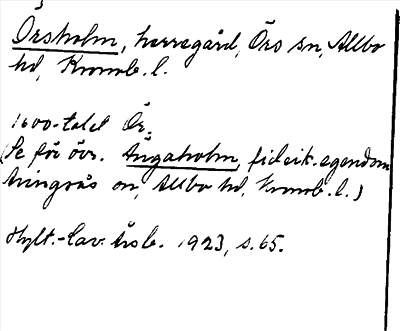 Örsholm, herregård, Örs sn, Allbo
hd, Kronob. l.
1600-talet Ör.
(Se för övr. Ängaholm, fideik. egendom
Aringsås sn, Allbo hd, Kronob. l.)
Hylt.-Cav. Årsb. 1923, s. 65.